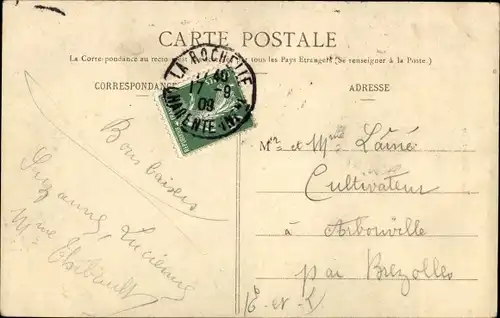 CARTE POSTALE
La Correspondance au recto n'est pas par tous les Pays Etrangers (Se renseigner à la Poste.)
CORRESPONDANCE
ADRESSE
LA ROCHELLE
17-9
09
CHARENTE-INF
Bons baisers
Suzanne, Lucienne
Mme Thibault
Mr et Mme Lainé
Cultivateur
à Arbouville
par Brezolles
E et L